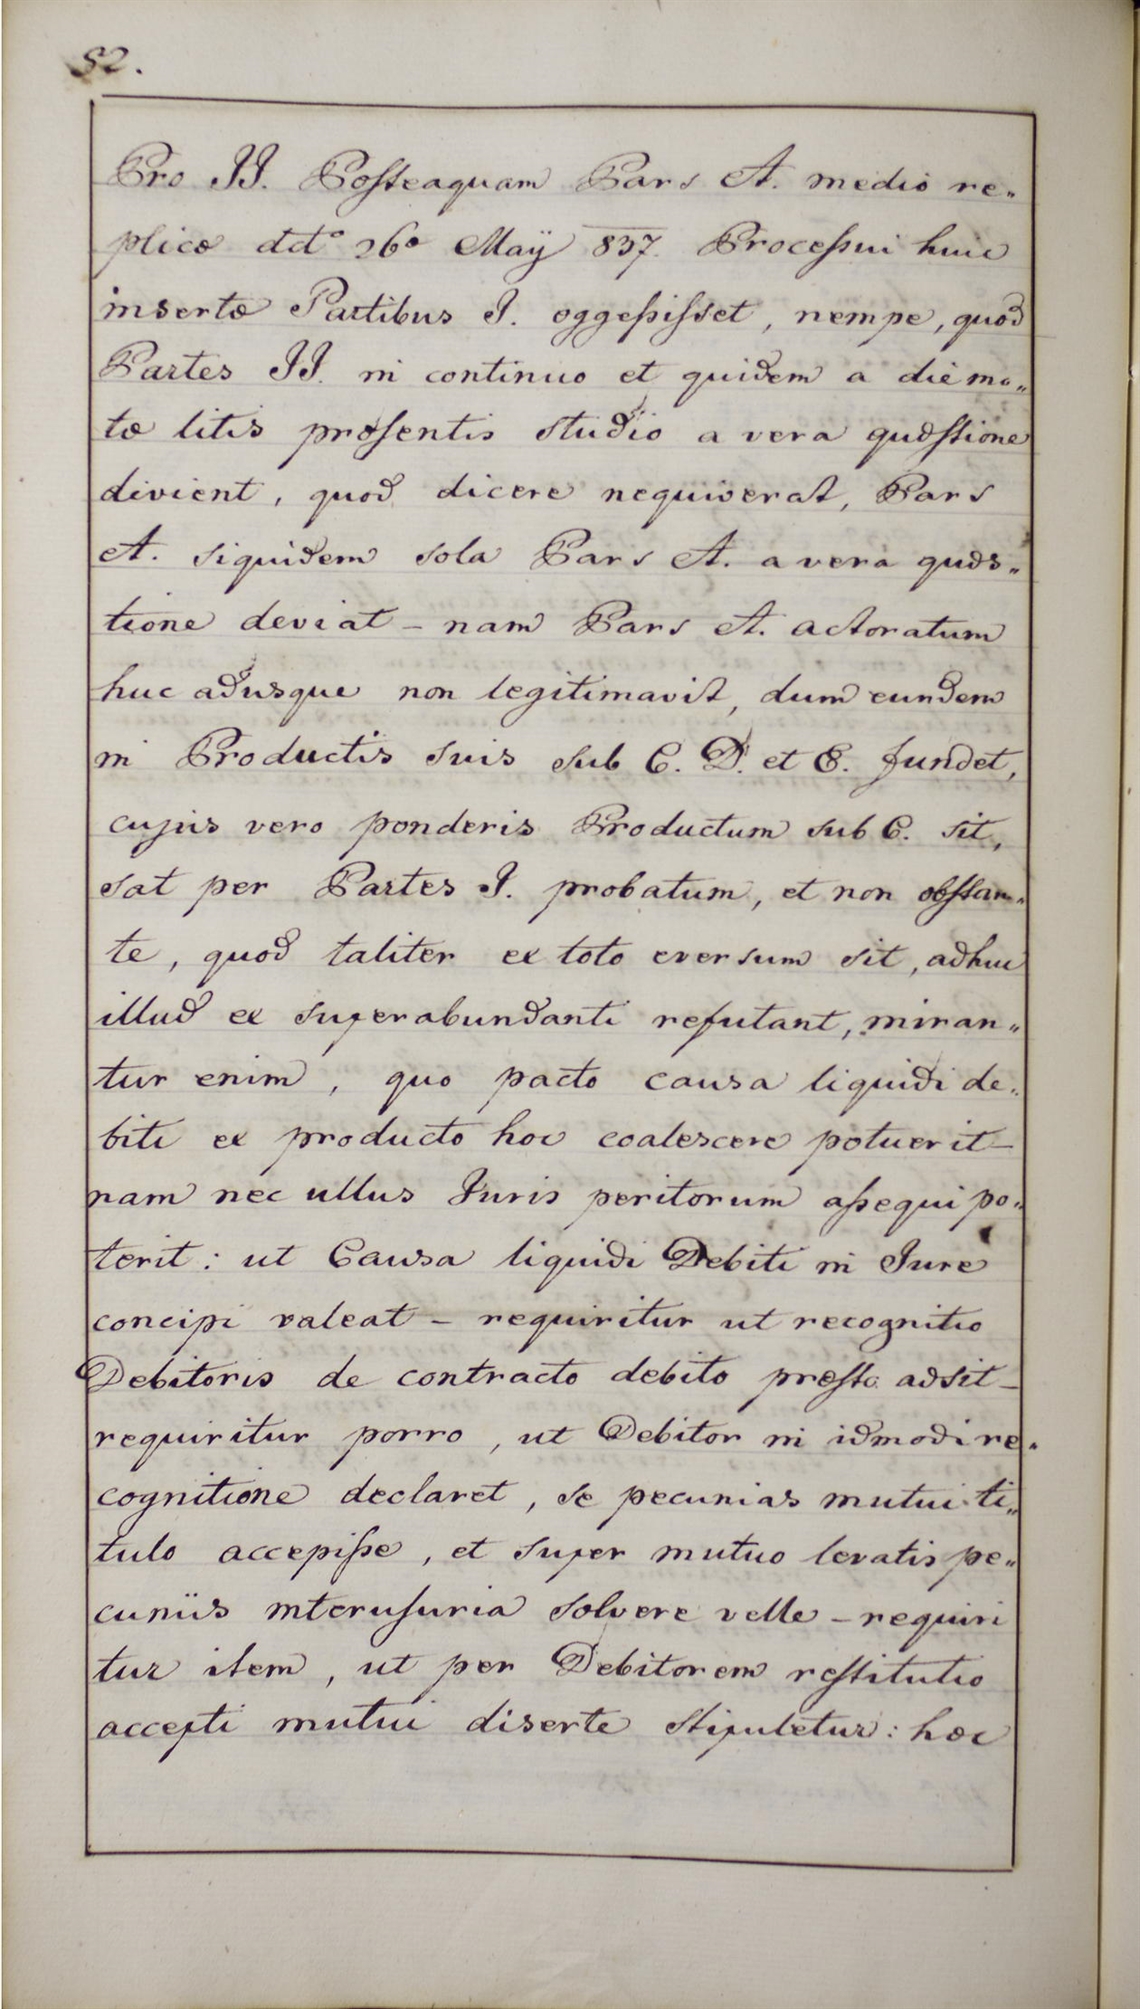 52.
Pro II. Posteaquam Pars A. medio re„
plicæ ddto 26a Maÿ 837. Processui huic
insertæ Partibus I. oggessisset, nempe, quod
Partes II. in continuo et quidem a die mo„
tæ litis præsentis studio a vera quæstione
divient, quod dicere nequiverat, Pars
A. siquidem sola Pars A. a vera quæs„
tione deviat – nam Pars A. actoratum
huc adusque non legitimavit, dum eundem
in Productis suis sub C. D. et E. fundet,
cujus vero ponderis Productum sub C. sit,
sat per Partes I. probatum, et non obstan„
te, quod taliter ex toto eversum sit, adhuc
illud ex superabundanti refutant, miran„
tur enim, quo pacto causa liquidi de„
biti ex producto hoc coalescere potuerit –
nam nec ullus Juris peritorum assequi po„
terit: ut Causa liquidi Debiti in Jure
concipi valeat – requiritur ut recognitio
Debitoris de contracto debito præsto adsit –
requiritur porro, ut Debitor in idmodi re„
cognitione declaret, se pecunias mutui ti„
tulo accepisse, et super mutuo levatis pe„
cuniis interusuria solvere velle – requiri
tur item, ut per Debitorem restitutio
accepti mutui diserte stipuletur: hæc